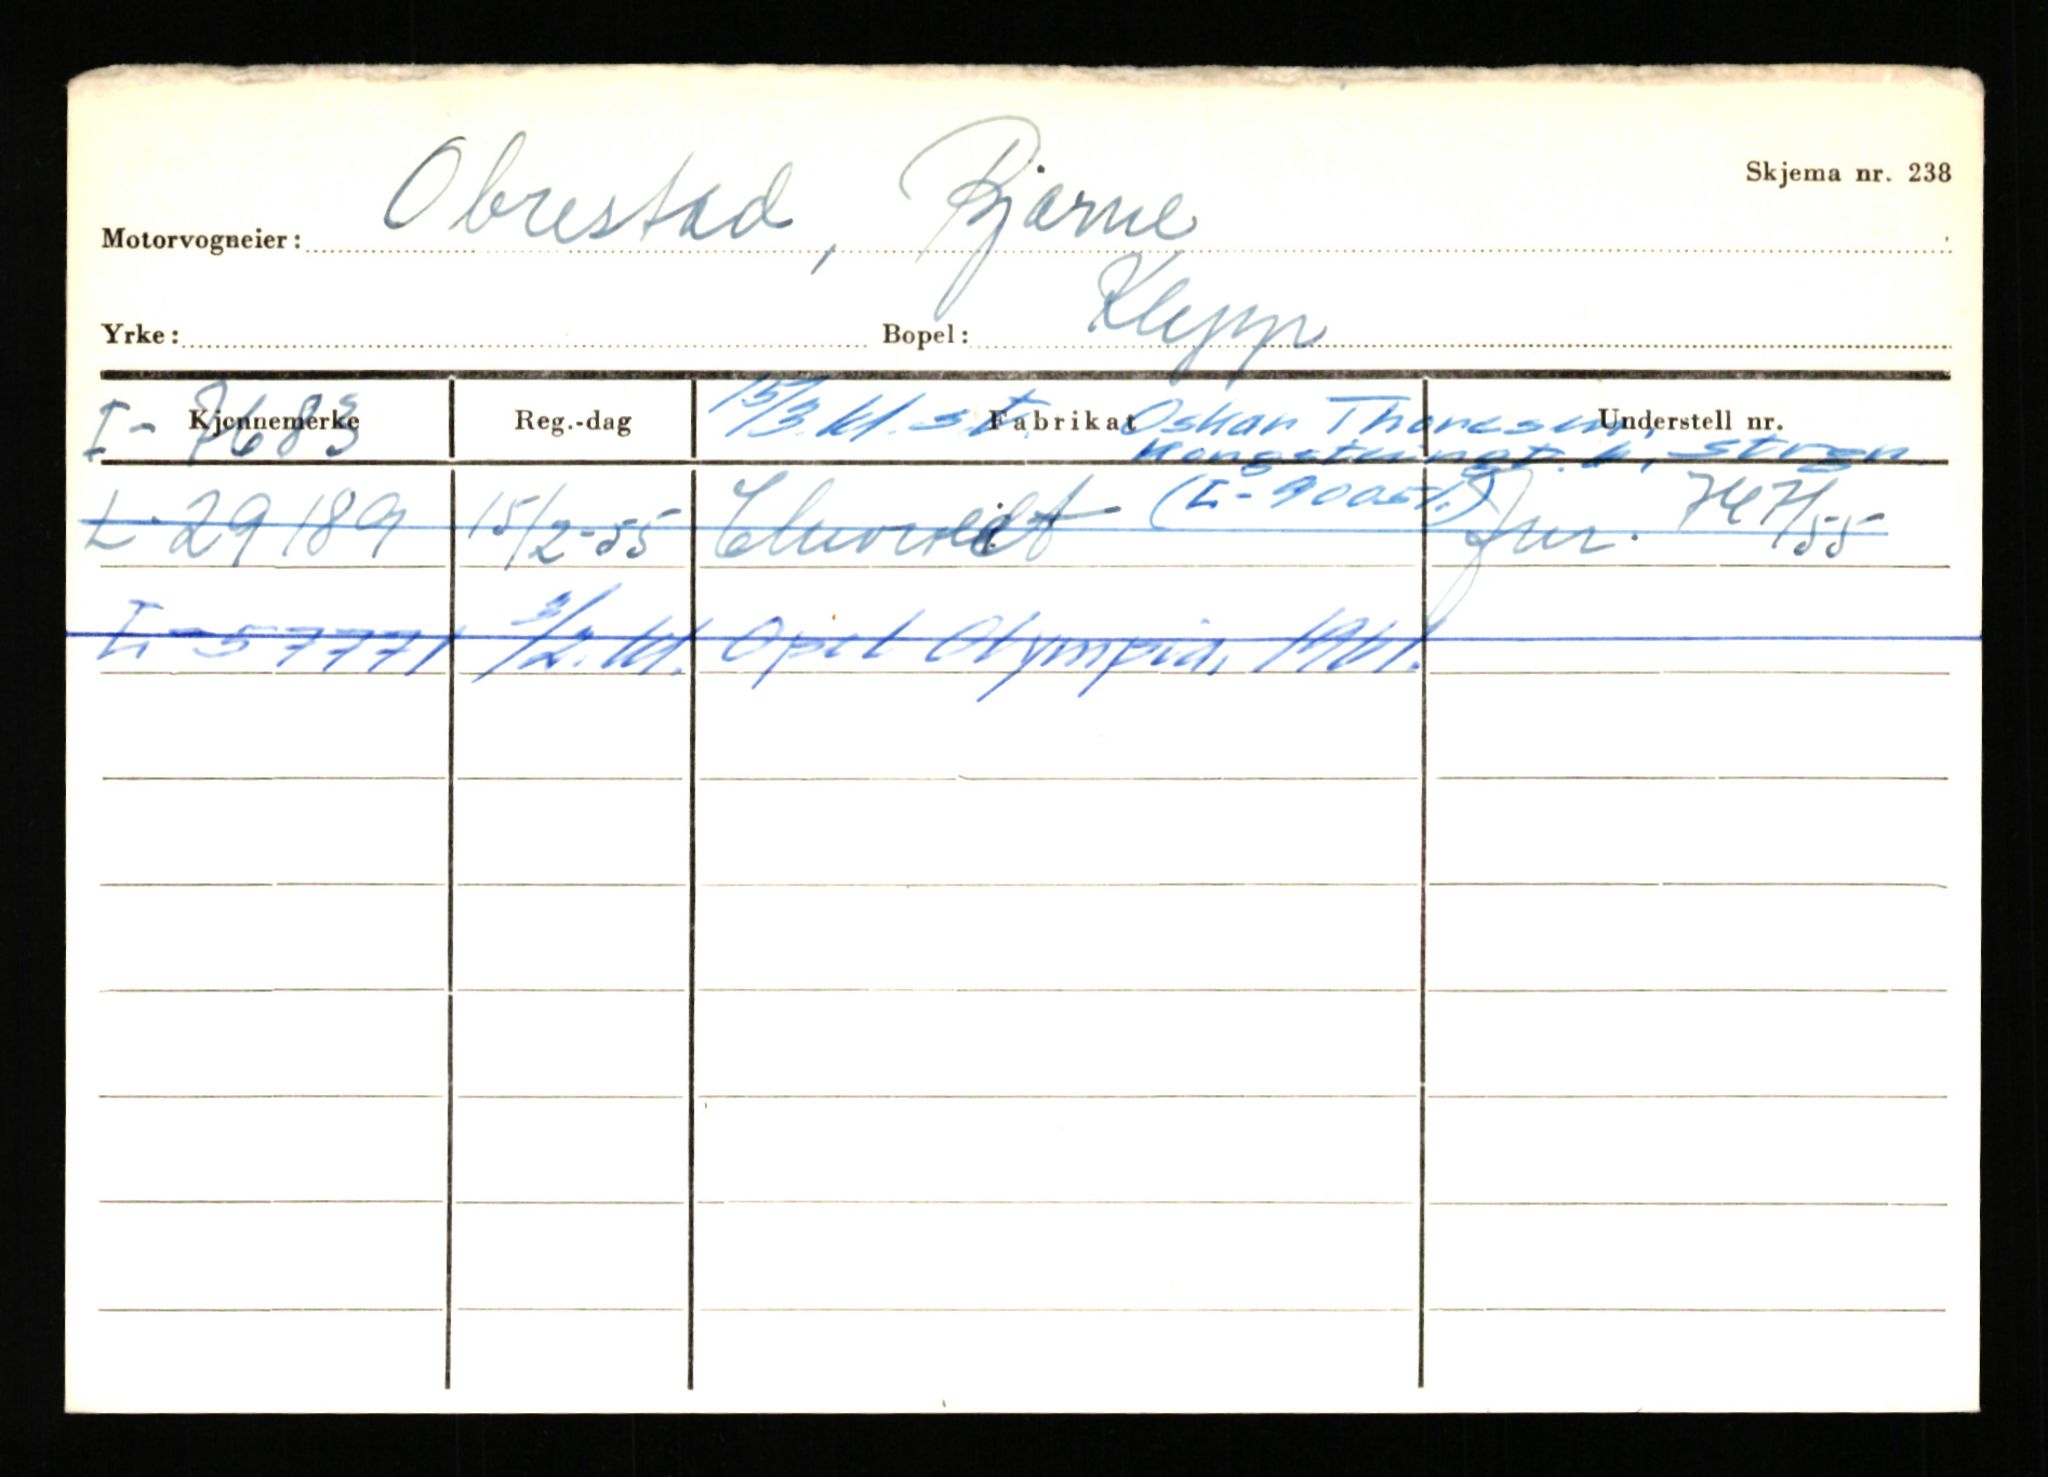 Skjema nr. 238
Motorvogneier: Obrestad, Bjarne
Yrke: Bopel: Klepp
Kjennemerke Reg.-dag Fabrikat Understell nr.
I - 7683 15/3.61. s.t. Oskar Thoresen,
L-29189 15/2-55 Chevrolet Jnr. 747/55
L-57771 3/2.61. Opel Olympia, 1961.